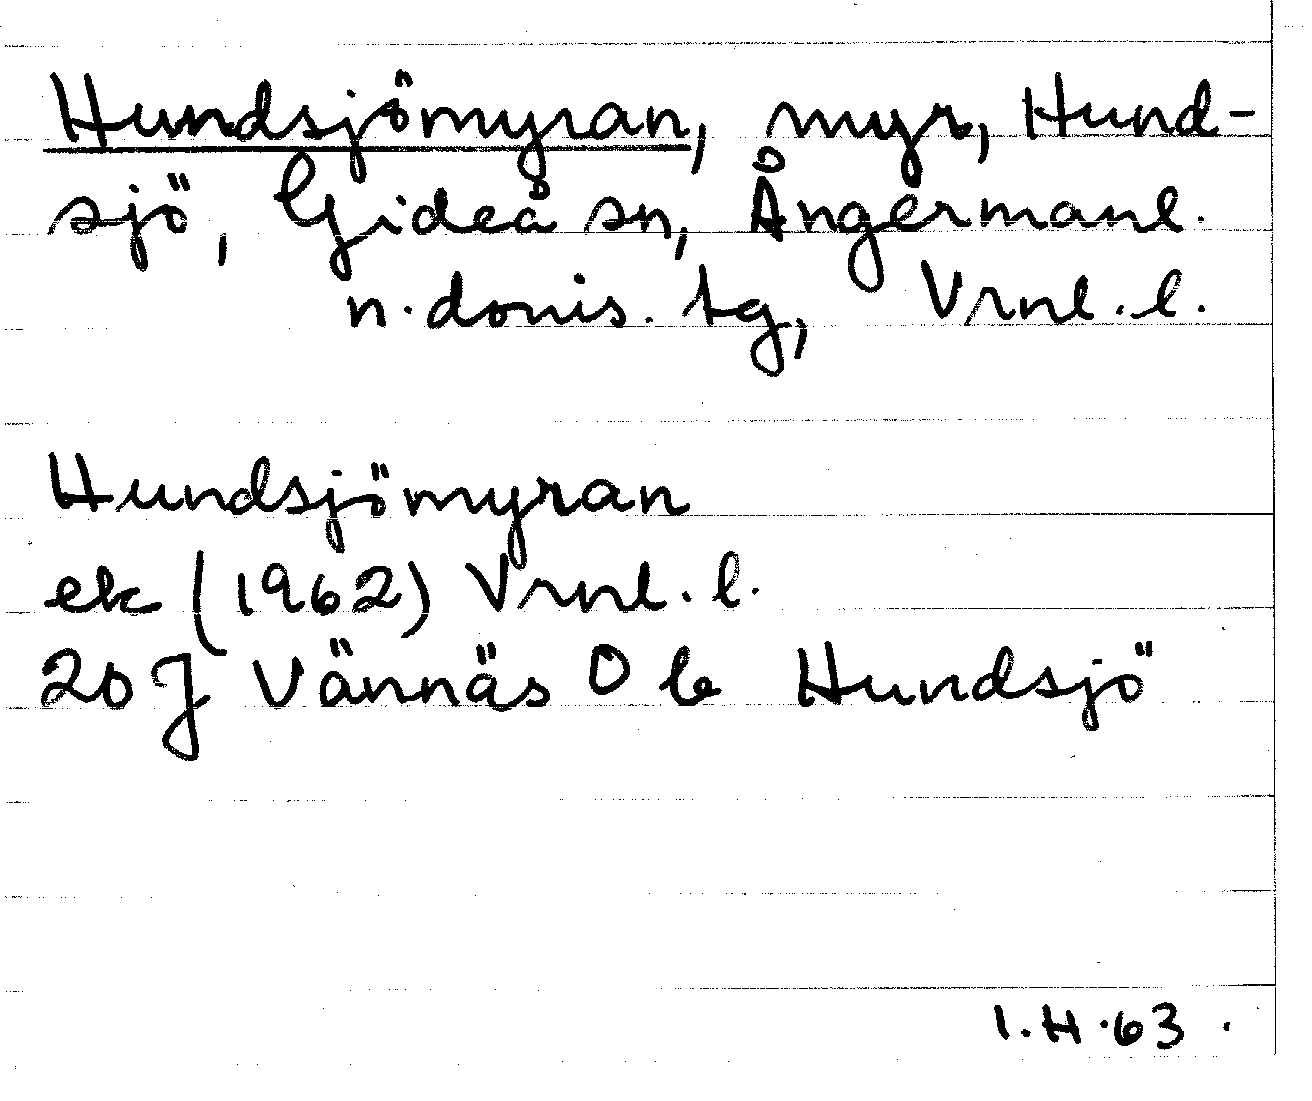 Hundsjömyran, myr, Hund-
sjö, Gideå sn, Ångermanl.
n. domis. tg, Vrnl. l.
Hundsjömyran
ek (1962) Vrnl. l.
20 J Vännäs O b Hundsjö
I. H. 63.